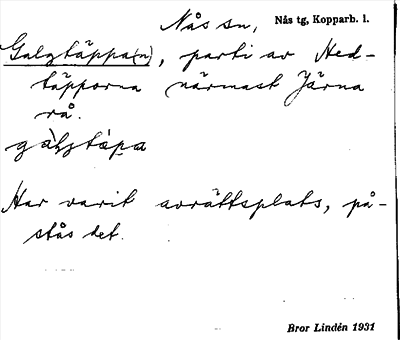 Nås sn, Nås tg, Kopparb. l.
Galgtäppa(n), parti av Hed-
täpporna närmast Järna
rå.
Har varit avrättsplats, på-
stås det.
Bror Lindén 1931